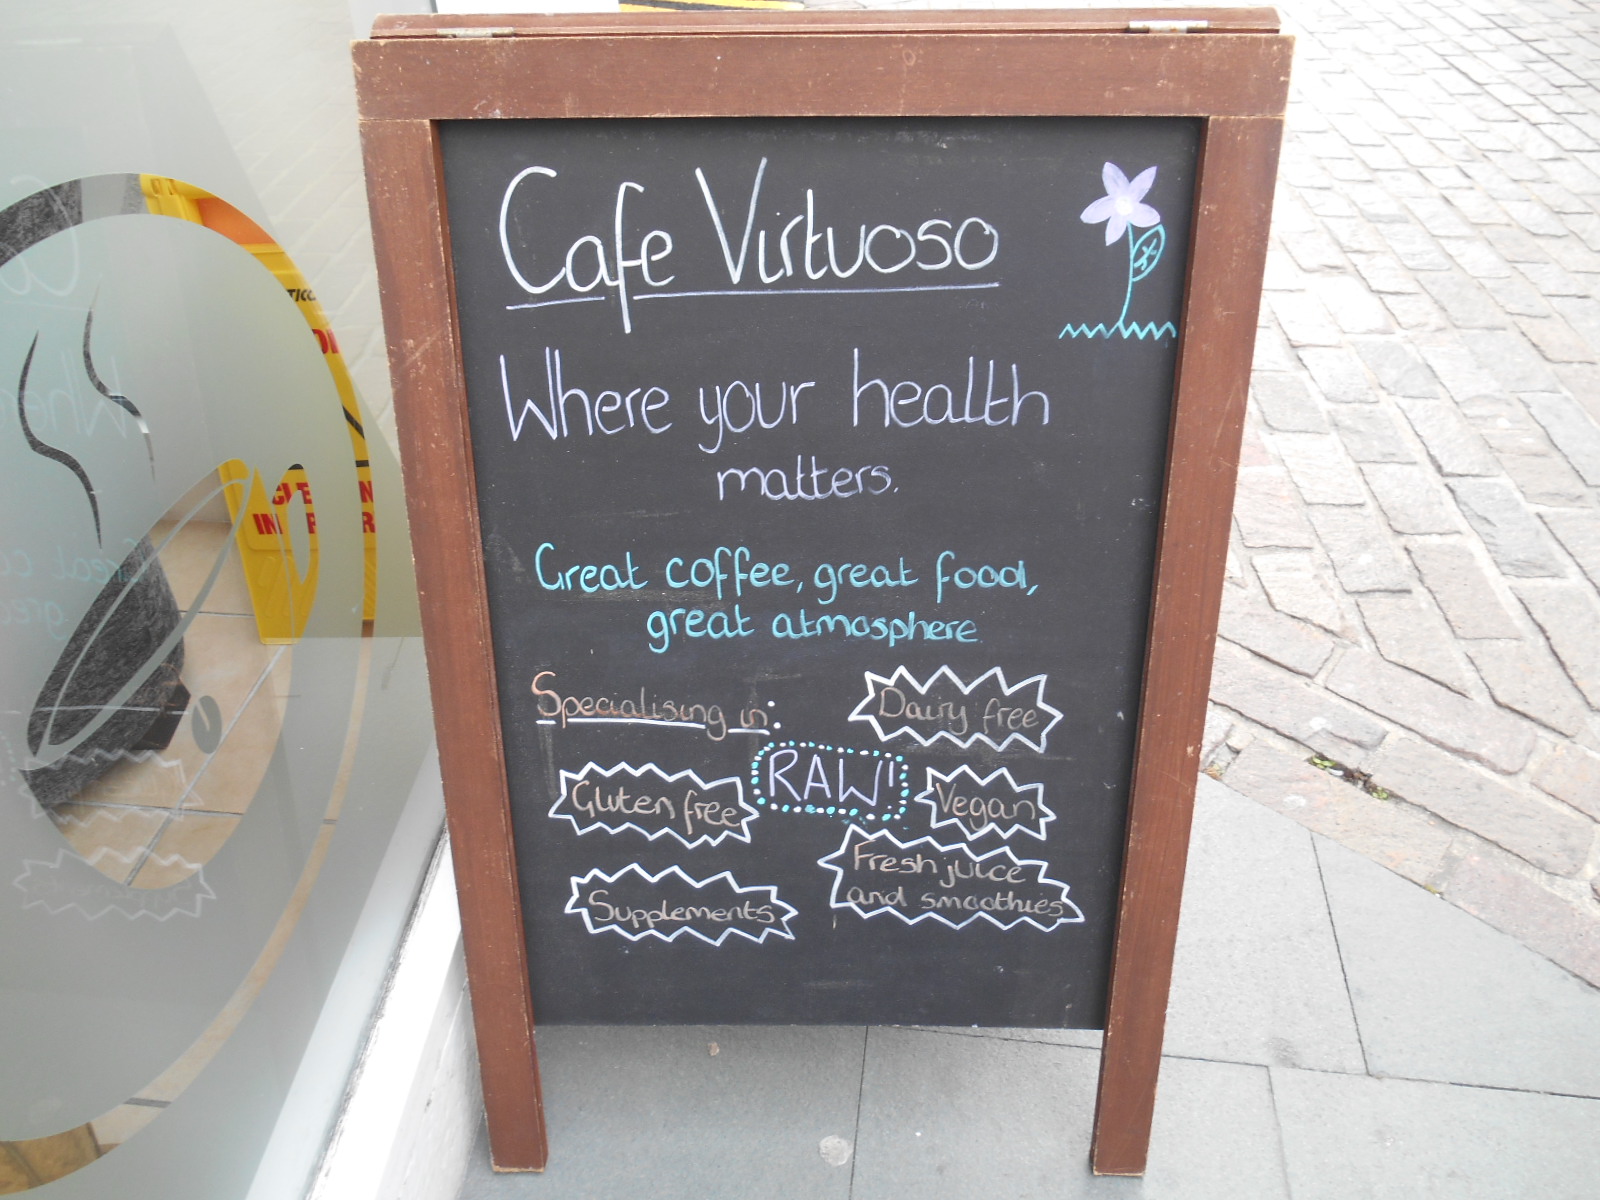 Cafe Virtuoso
Where your health
matters.
Great coffee, great food,
great atmosphere
Specialising in:
Dairy free
RAW!
Gluten free
Vegan
Fresh juice
and smoothies
Supplements